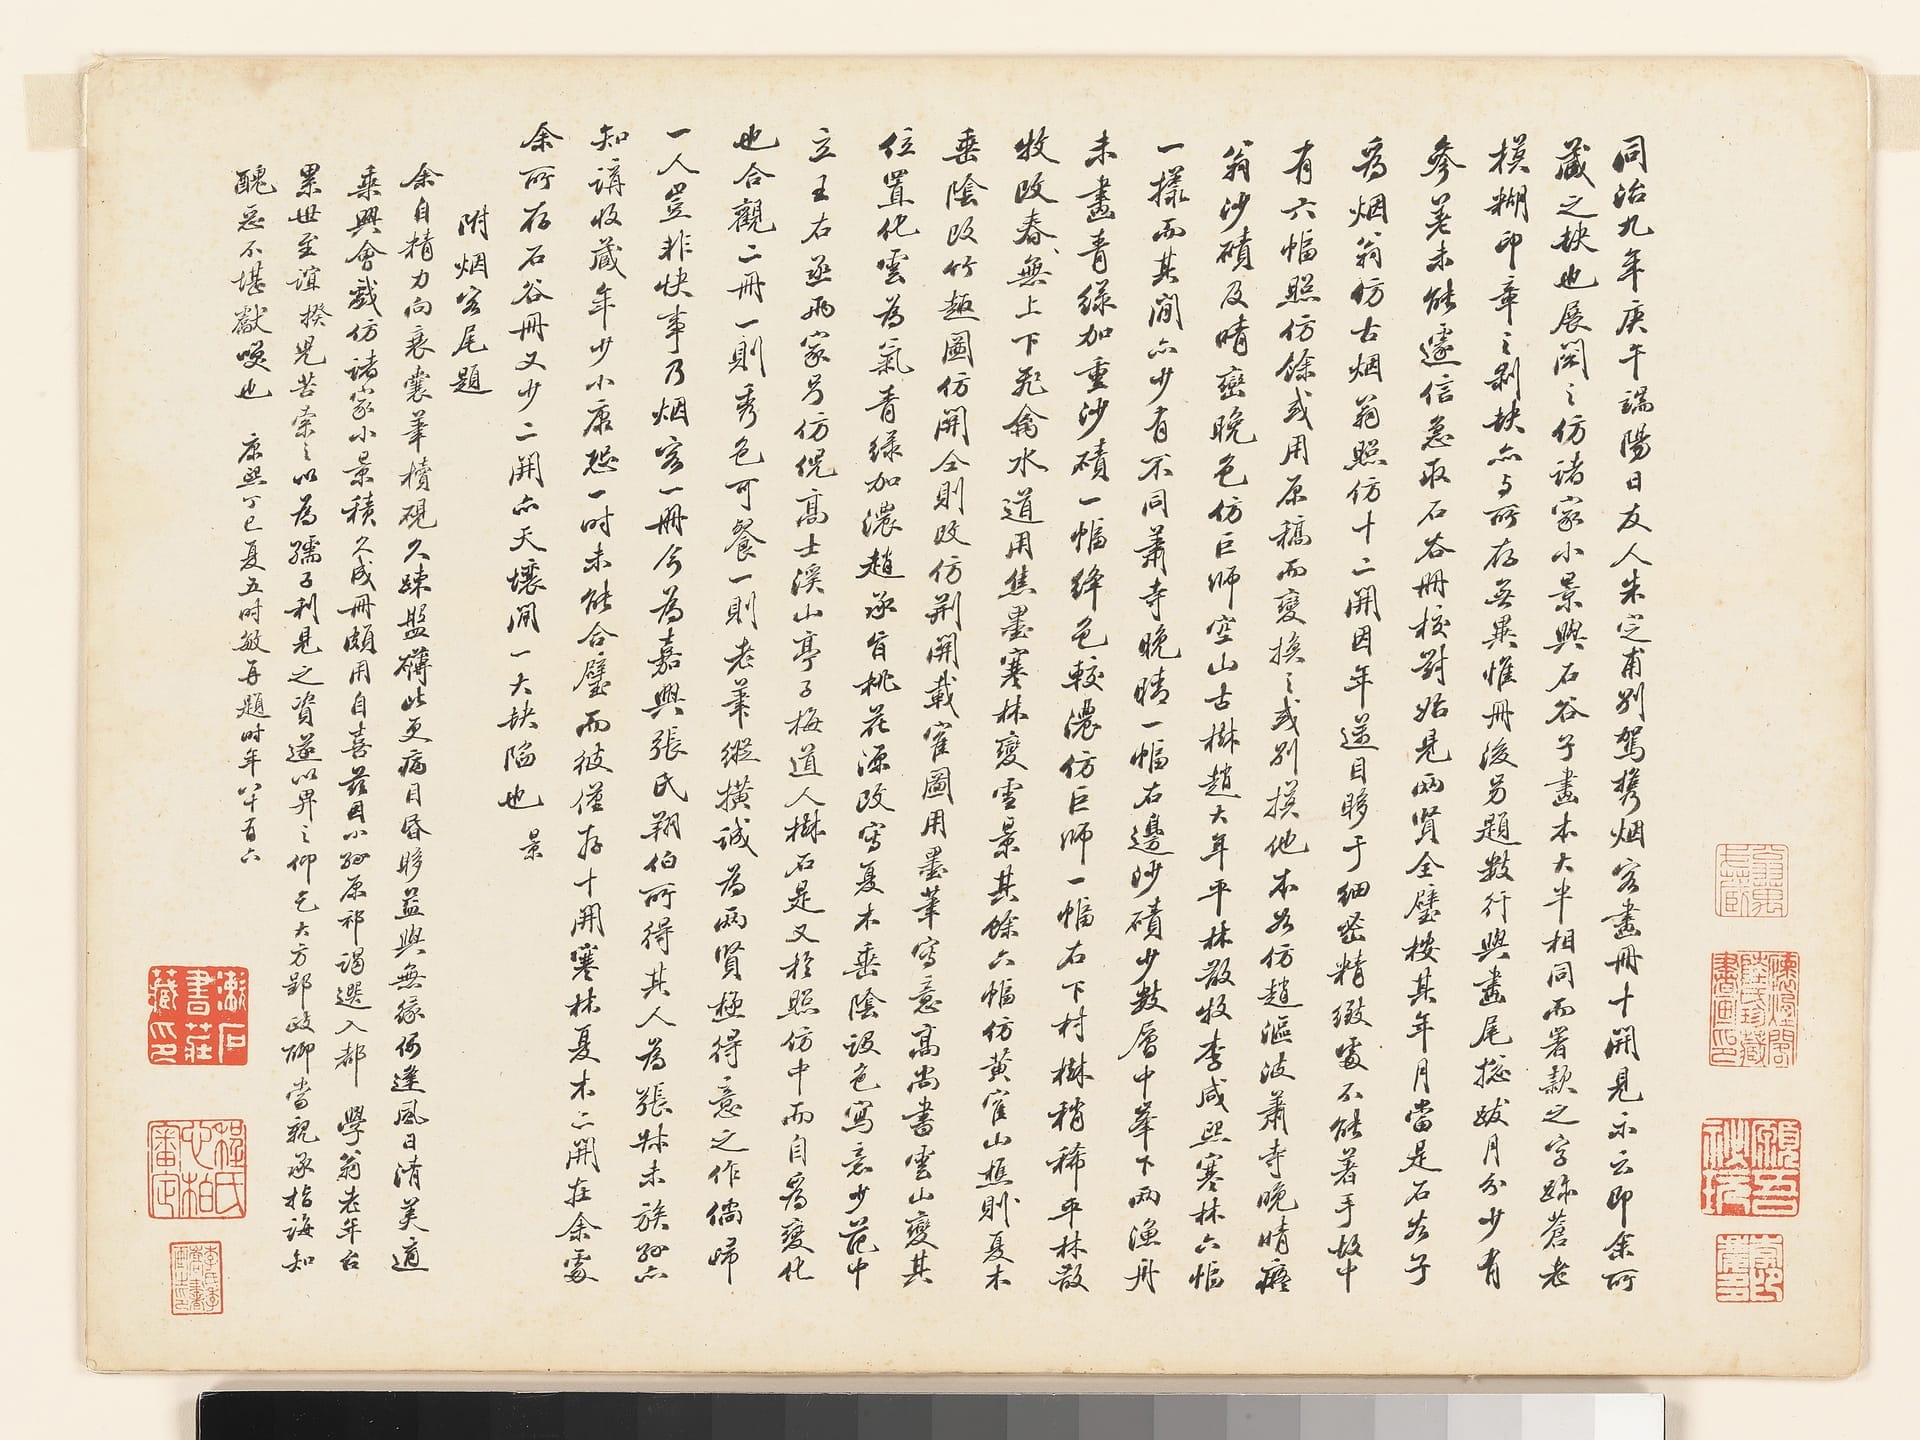 同治九年庚午端陽日友人朱定甫別駕携烟客畫冊十開見示云即余所
藏之缺也展閱之仿諸家小景與石谷子畫本大半相同而署款之字跡蒼老
摸糊印章之剝缺亦与所存無異惟冊後另題數行與畫尾捴跋月分少有
參差未能遽信急取石谷冊校對始見兩賢全璧按其年月當是石谷子
為烟翁仿古烟翁照仿十二開因年邁目眵于細密精緻處不能著手故中
有六幅照仿餘或用原稿而變換之或別摸他本如仿趙漚波蕭寺晚晴癡
翁沙磧及晴巒晚色仿巨師空山古樹趙大年平林散牧李咸熙寒林六幅
一㨾而其間亦少有不同蕭寺晚晴一幅右邊沙磧少數層中峯下兩漁舟
未畫青綠加重沙磧一幅絳色較濃仿巨師一幅右下村樹稍稀平林散
牧改春無上下飛禽水道用焦墨寒林變雪景其餘六幅仿黃崔山樵則夏木
垂陰改竹趣圖仿關仝則改仿荆關載寉圖用墨筆寫意高尚書雲山變其
位置化雲為氣青綠加濃趙承旨桃花源改寫夏木垂陰設色寫意少范中
立王右丞兩家另仿倪高士溪山亭子梅道人樹石是又於照仿中而自為變化
也合觀二冊一則秀色可餐一則老筆縱橫誠為兩賢極得意之作倘歸
一人豈非快事乃烟客一冊今為嘉興張氏翔伯所得其人為張妹未族孫亦
知講收藏年少小康恐一時未能合璧而彼僅存十開寒林夏木二開在余處
余所存石谷冊又少二開亦天壤間一大缺陷也 景
附烟客尾題
余自精力向衰囊筆櫝硯久踈盤礡此更病目昏眵益與無緣偶逢風日清美適
乘興會戲仿諸家小景積久成冊頗用自喜茲因小孫原祁謁選入都 學翁老年台
累世至誼揆兒苦索之以為孺子利見之資遂以畀之仰乞大方郢政聊當親承指誨知
醜惡不堪獻㗛也 康熙丁巳夏五時敏再題時年八十有六
瀬石
書莊
藏印
程氏
心柏
審定
顧吾
秘玩